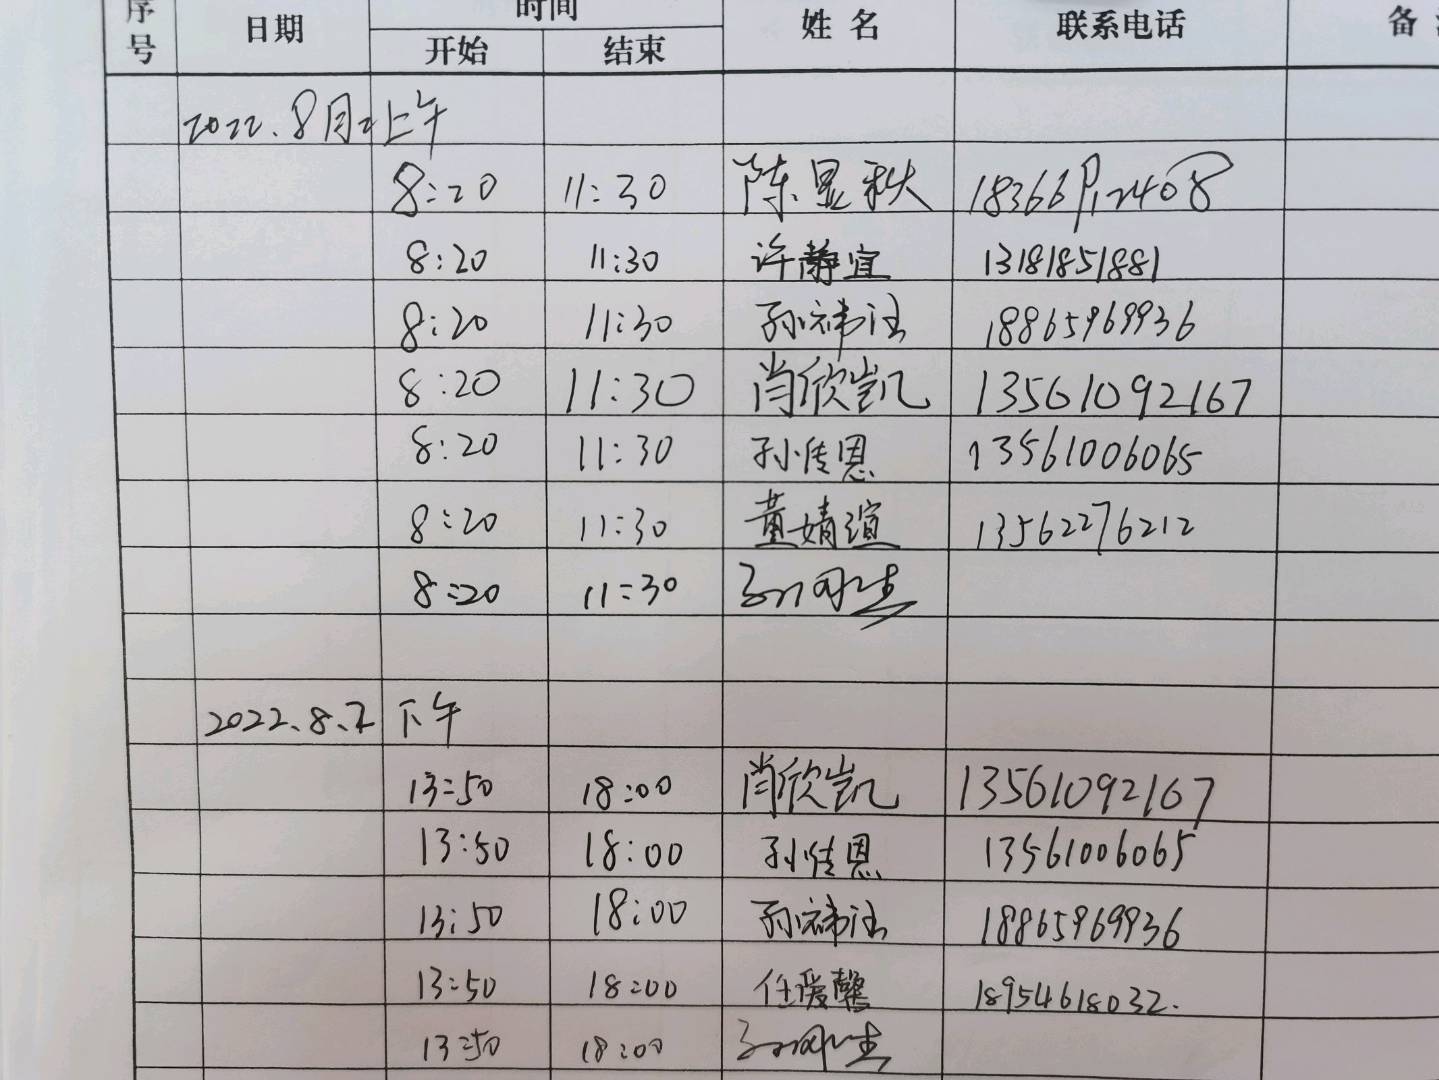 序号 日期 时间 姓名 联系电话 备
开始 结束
2022.8月2 上午
8:20 11:30 陈显秋
8:20 11:30 许静宜 13181851881
8:20 11:30 孙祎 18865969936
8:20 11:30 肖欣凯 13561092167
8:20 11:30 孙传恩 13561006065
8:20 11:30 董婧谊 13562276212
8:20 11:30
2022.8.2 下午
13:50 18:00 肖欣凯 13561092167
13:50 18:00 孙传恩 13561006065
13:50 18:00 孙祎 18865969936
13:50 18:00 任爱馨 18954618032.
13:50 18:00